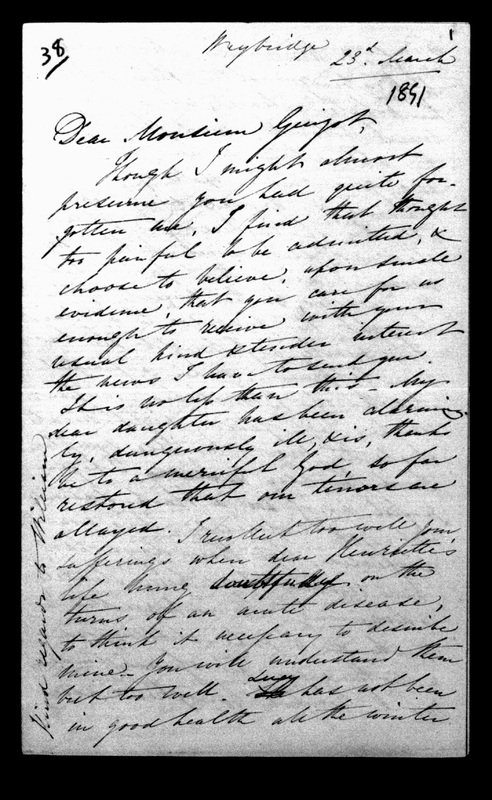 38
1
Weybridge
23d March
1851
Dear Monsieur Guizot,
Though I might almost
presume you had quite for-
gotten me, I find that thought
too painful to be admitted, &
choose to believe, upon small
evidence, that you care for us
enough to receive with your
usual kind & tender interest
the news I have to send you.
It is no less than this – My
dear daughter has been alarming
ly, dangerously ill, & is, thanks
be to a merciful God, so far
restored that our terrors are
allayed. I recollect too well your
sufferings when dear Henriette's
life hung doubtfully on the
turns of an acute disease,
to think it necessary to describe
mine – You will understand them
but too well. Lucy has not been
in good health all the winter
Kind regards to